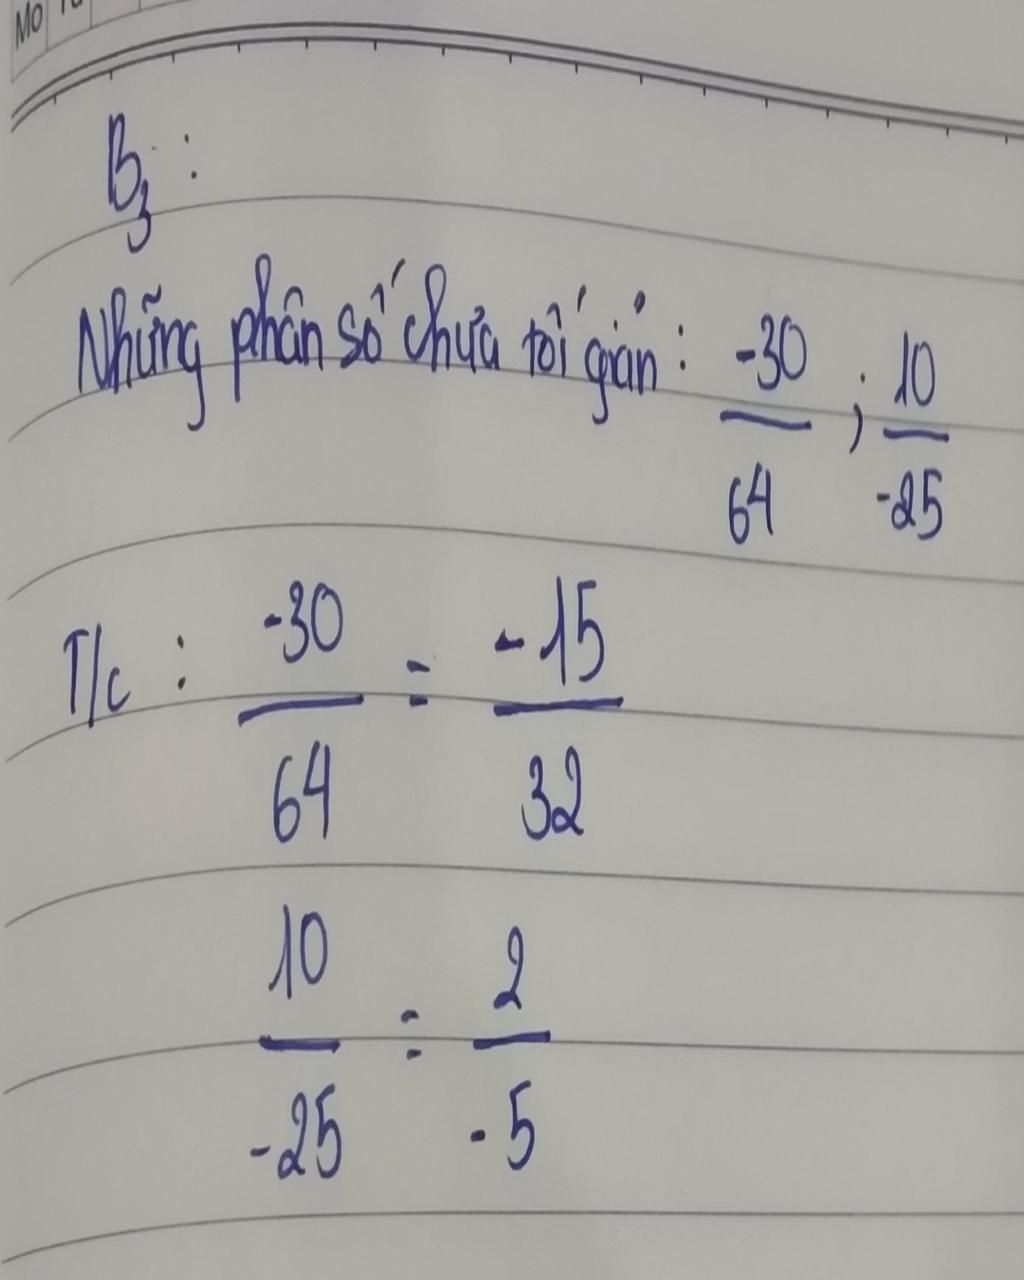 Mo
B3 :
Những phân số chưa tối giản : -30/64 ; 10/-25
T/c : -30/64 = -15/32
10/-25 = 2/-5